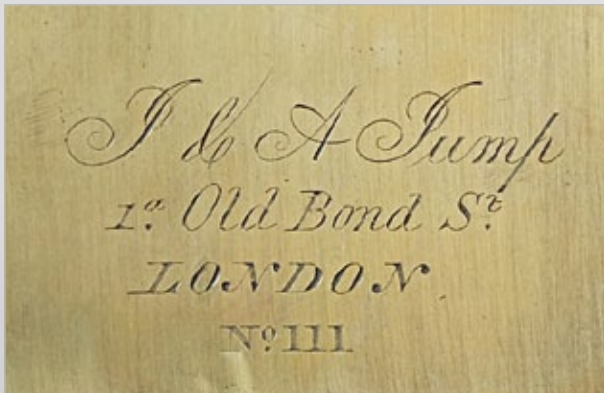 J & A Jump
1a. Old Bond St.
LONDON
No. 111